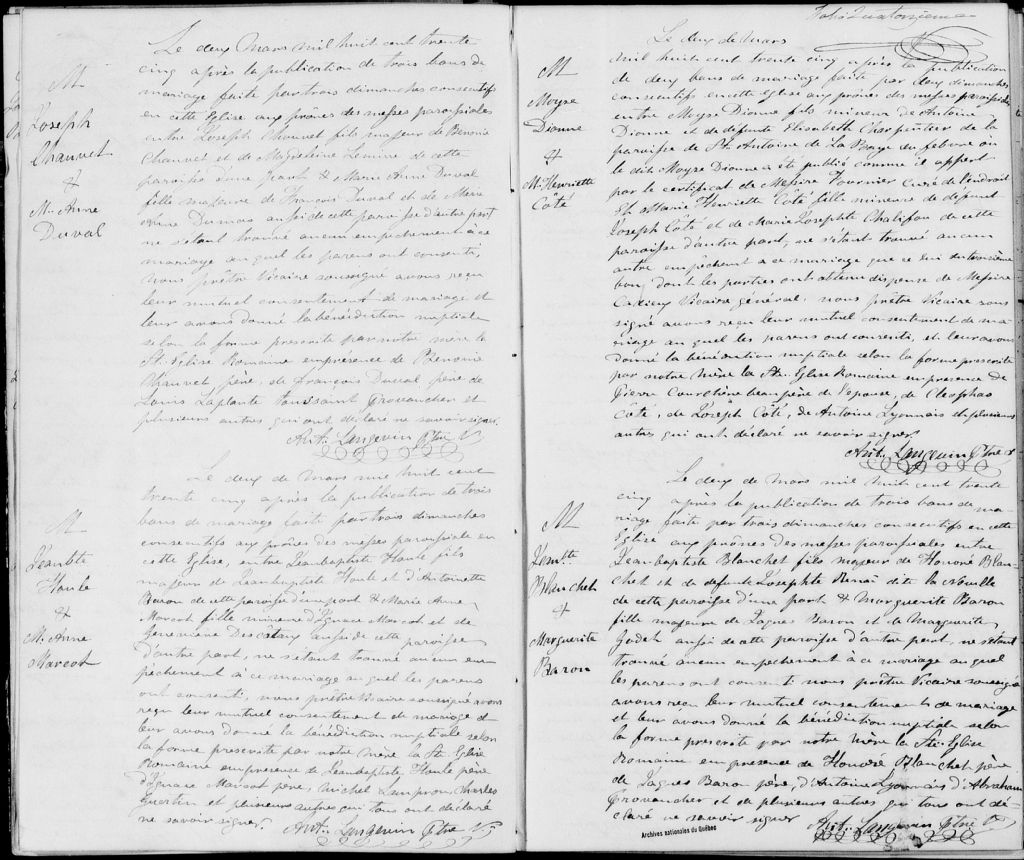 M
Joseph
Chauvet
&
M. Anne
Duval
Le deux Mars mil huit cent trente
cinq après la publication de trois bans de
mariage faite par trois dimanches consecutifs
en cette Eglise aux prônes des messes paroissiales
entre Joseph Chauvet fils majeur de
Chauvet et de Magdeleine Lemire de cette
paroisse d'une part & Marie Anne Duval
fille majeure de François Duval et de Marie
Anne Dumas aussi de cette paroisse d'autre part
ne s'étant trouvé aucun empechement à ce
mariage auquel les parens ont consenti,
nous prêtre Vicaire soussigné avons reçu
leur mutuel consentement de mariage et
leur avons donné la bénédiction nuptiale
selon la forme prescrite par notre mère la
Ste. Eglise Romaine en presence de
Chauvet, père, de François Duval père de
Louis Laplante Toussaint Provancher et
plusieurs autres qui ont déclaré ne savoir signer.
Ant. Langevin Ptre V.
M
Jean Bte
Houle
&
M. Anne
Marcot
Le deux de Mars mil huit cent
trente cinq après la publication de trois
bans de mariage faite par trois dimanches
consecutifs aux prônes des messes paroissiale en
cette Eglise, entre Jeanbaptiste Houle fils
majeur de Jeanbaptiste Houle et d'Antoinette
Baron de cette paroisse d'une part & Marie Anne
Marcot fille mineure d'Ignace Marcot et de
Geneviève aussi de cette paroisse
d'autre part, ne s'étant trouvé aucun em
pêchement à ce mariage auquel les parens
ont consenti, nous prêtre Vicaire soussigné avons
reçu leur mutuel consentement de mariage et
leur avons donné la bénédiction nuptiale selon
la forme prescrite par notre mère la Ste. Eglise
Romaine en presence de Jeanbaptiste Houle père
d'Ignace Marcot père, Michel Charles
Guertin et plusieurs autres qui tous ont déclaré
ne savoir signer.
Ant. Langevin Ptre V.
Folio quatorzieme
M
Moyse
Dionne
&
M. Henriette
Côté
Le deux de Mars
mil huit cent trente cinq après la publication
de deux bans de mariage faite par deux dimanches
consecutifs en cette Eglise aux prônes des messes paroissiales
entre Moyse Dionne fils mineur de Antoine
Dionne et de défunte Elisabeth Charpentier de la
paroisse de St. Antoine de La Baye du febvre où
le dit Moyse Dionne a été publié comme il appert
par le certificat de Messire Fournier Curé de l'endroit
Et Marie Henriette Côté fille mineure de defunt
Joseph Côté et de Marie Josephte Chalifou de cette
paroisse d'autre part, ne s'étant trouvé aucun
autre empêchement à ce mariage que celui du troisième
ban, dont les parties ont obtenu dispense de Messire
Cadieux Vicaire général. nous prêtre Vicaire sous
signé avons reçu leur mutuel consentement de ma
riage auquel les parens ont consenti, et leur avons
donné la bénédiction nuptiale selon la forme prescrite
par notre Mère la Ste. Eglise Romaine en presence de
Pierre Courchène beau père de l'epouse, de Cleophas
Côté, de Joseph Côté, de Antoine Lyonnais et plusieurs
autres qui ont déclaré ne savoir signer.
Ant. Langevin Ptre V
M
Jean Bte.
Blanchet
&
Marguerite
Baron
Le deux de Mars mil huit cent trente
cinq après la publication de trois bans de ma-
riage faite par trois dimanches consecutifs en cette
Eglise aux prosnes des messes paroissiales entre
Jeanbaptiste Blanchet fils majeur de Honoré Blan
chet et de defunte Josephte
de cette paroisse d'une part & Marguerite Baron
fille majeure de Jaques Baron et de Marguerite
aussi de cette paroisse d'autre part, ne s'étant
trouvé aucun empêchement à ce mariage auquel
les parens ont consenti nous prêtre Vicaire soussigné
avons reçu leur mutuel consentements de mariage
et leur avons donné la bénédiction nuptiale selon
la forme prescrite par notre Mère la Ste. Eglise
Romaine en presence de Honoré Blanchet père
de Jaques Baron père, d'Antoine Lyonnais d'Abraham
Provancher et de plusieurs autres qui tous ont dé
claré ne savoir signer
Ant. Langevin Ptre V
Archives nationales du Québec